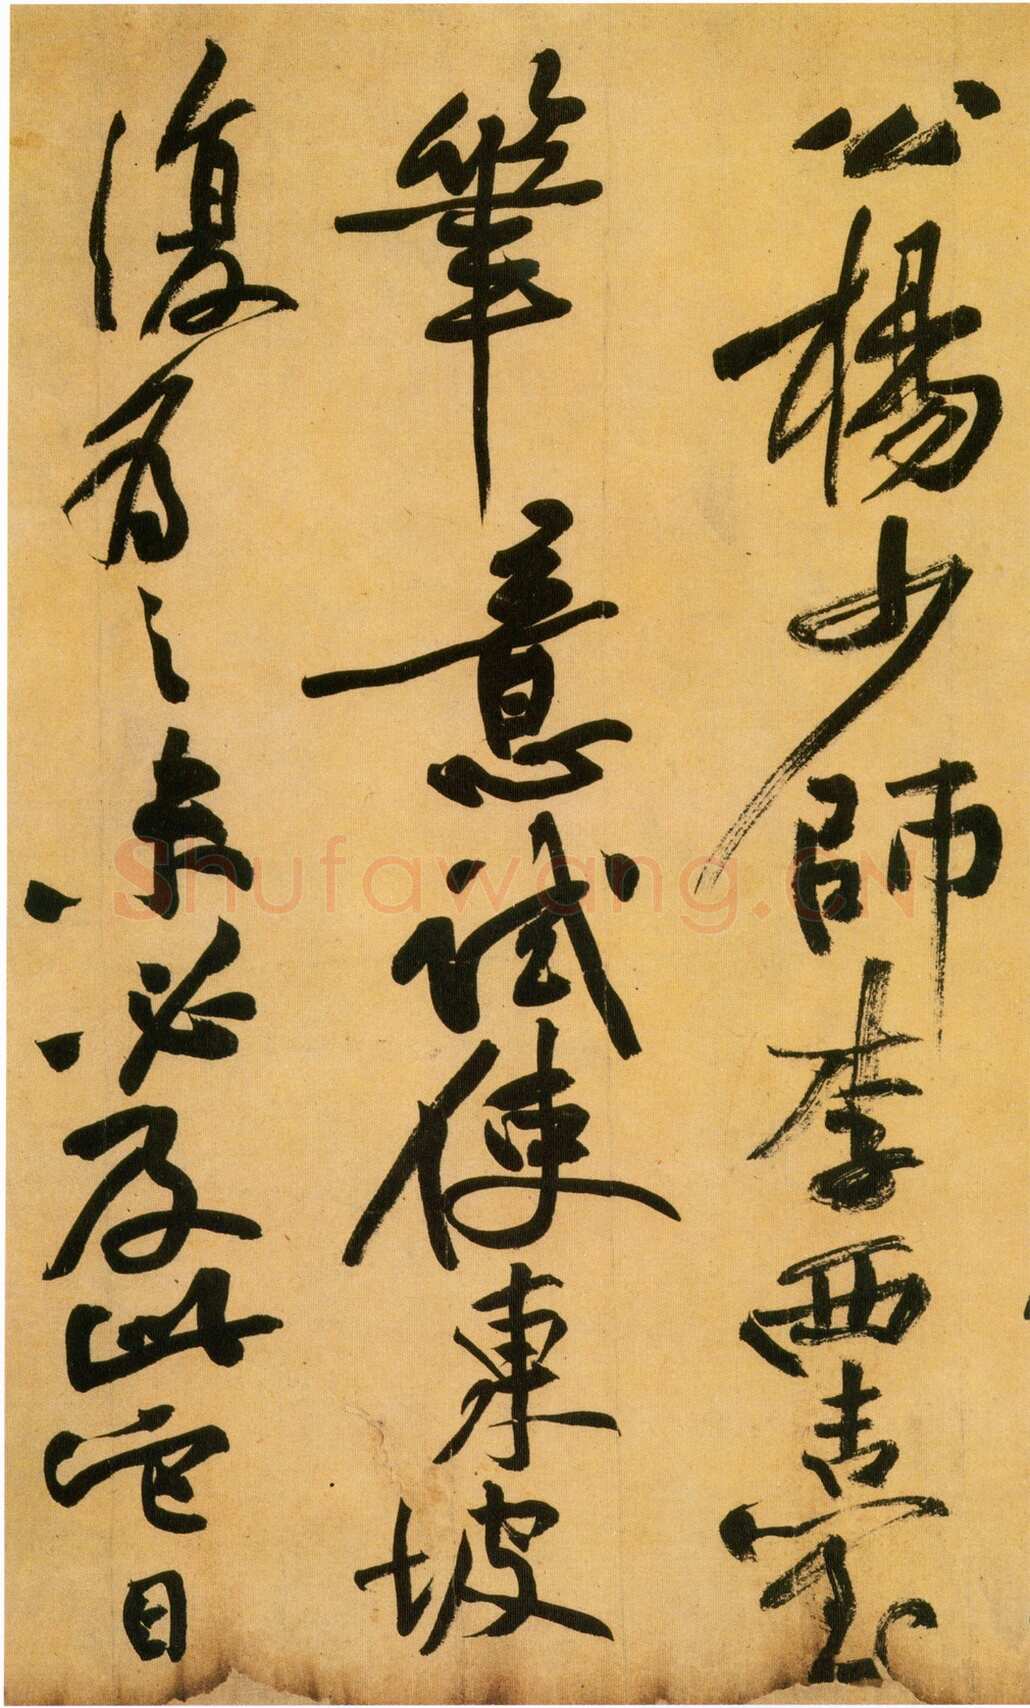 公楊少師李西臺
筆意試使東坡
復為之未必及此它日
Shufawang.CN